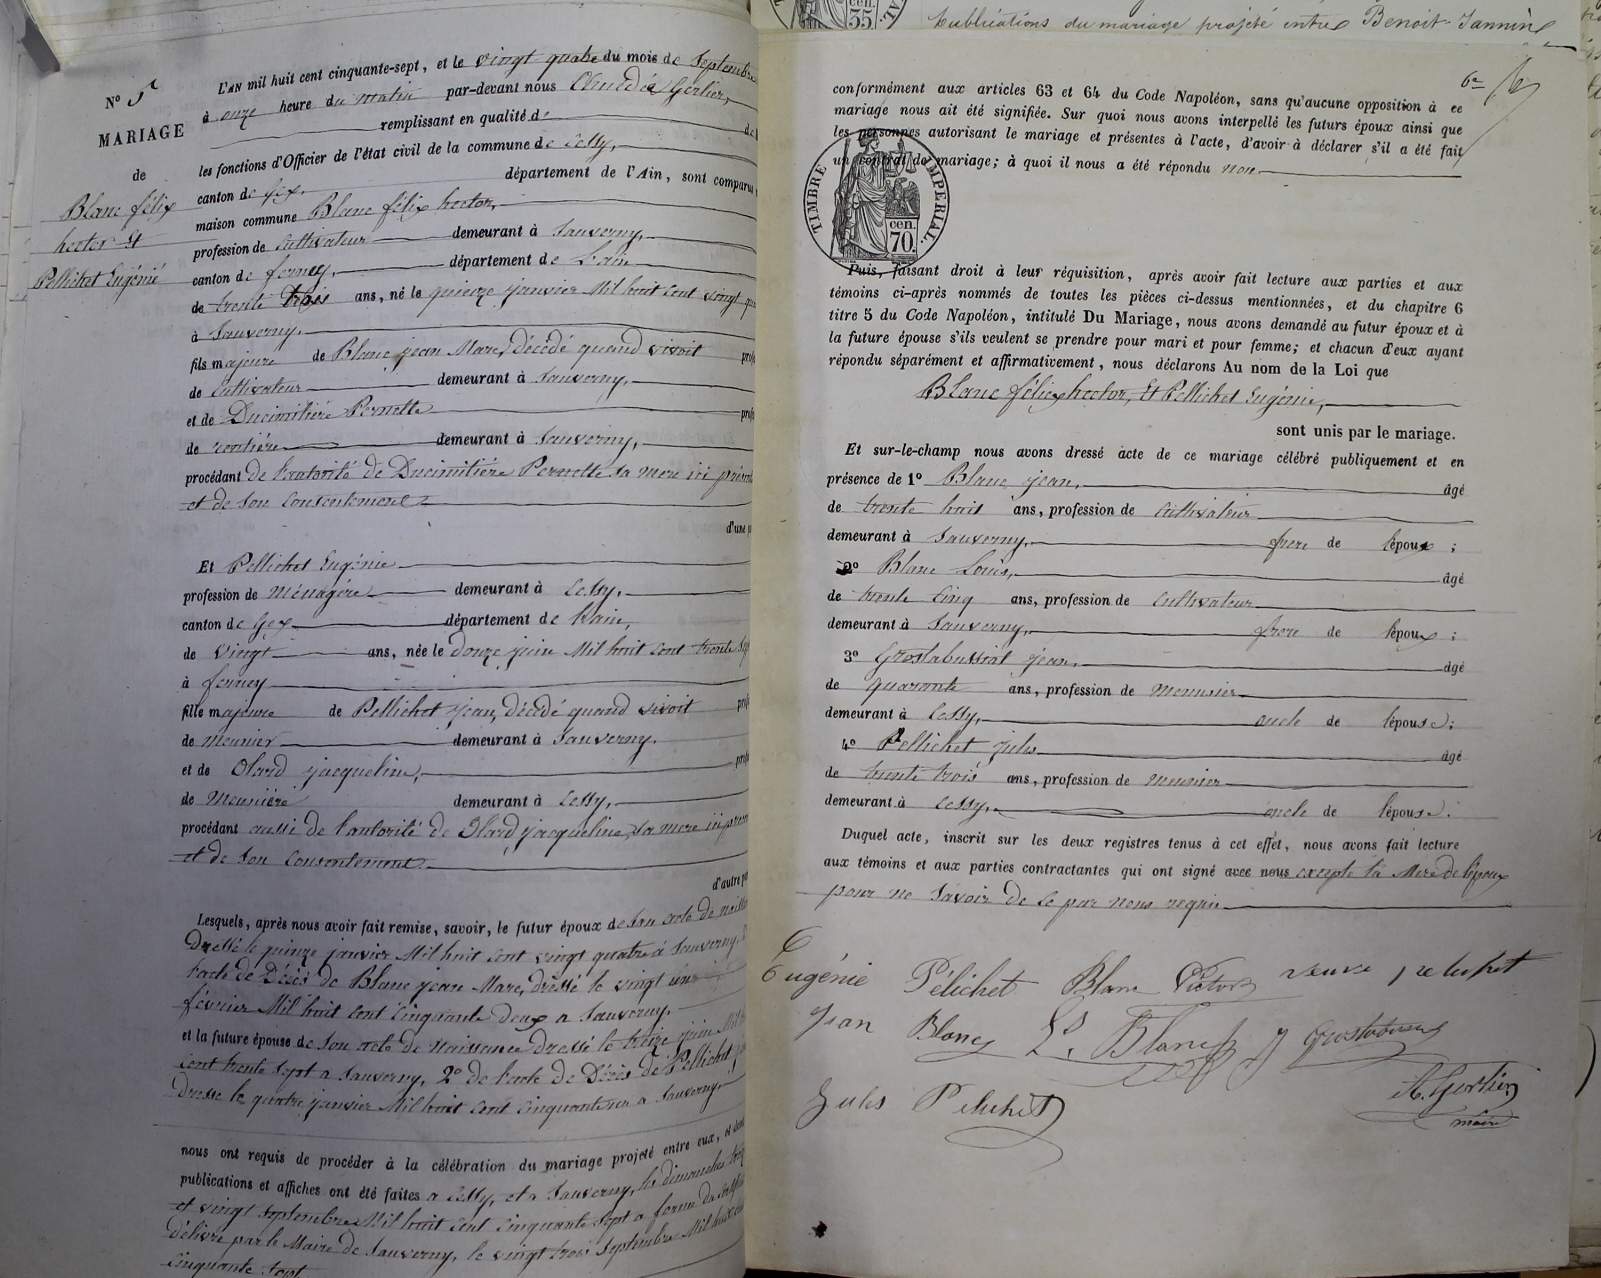 N° 5
MARIAGE
de
Blanc félix
hector Et
Pellichet Eugénié
L'AN mil huit cent cinquante-sept, et le vingt quatre du mois de Septembre
à onze heure du matin par-devant nous Amédée Gerlier,
remplissant en qualité de
les fonctions d'Officier de l'état civil de la commune de Cessy,
canton de Gex. département de l'Ain, sont comparus
maison commune Blanc félix hector,
profession de Cultivateur demeurant à Sauverny,
canton de ferney, département de L'ain
de trente trois ans, né le quinze janvier Mil huit cent vingt
à Sauverny,
fils majeure de Blanc jean Marc, décédé quand vivoit
de Cultivateur demeurant à Sauverny,
et de Ducimitière Pernette
de rentière demeurant à Sauverny,
procédant de l'autorité de Ducimitière Pernette sa mere ici
et de son consentement
d'une
Et Pellichet Eugénie
profession de Ménagère demeurant à Cessy,
canton de Gex département de L'ain,
de vingt ans, née le douze juin Mil huit cent trente
à ferney
fille majeure de Pellichet jean, décédé quand vivoit
de meunier demeurant à Sauverny.
et de Olard jacqueline,
de Meunière demeurant à Cessy,
procédant aussi de l'autorité de Olard jacqueline, sa mere ici
et de son consentement
d'autre
Lesquels, après nous avoir fait remise, savoir, le futur époux de son acte de
Dressé le quinze janvier Mil huit cent vingt quatre à Sauverny.
l'acte de Décès de Blanc jean Marc, dressé le vingt un
février Mil huit cent cinquante deux a Sauverny.
et la future épouse de son acte de Naissance dressé le treize juin Mil
cent trente sept a Sauverny, 2° de l'acte de Décès de Pellichet
dressé le quatre janvier Mil huit cent cinquante un a Sauverny
nous ont requis de procéder à la célébration du mariage projeté entre eux, et
publications et affiches ont été faites a Cessy, et a Sauverny, les dimanches
et vingt septembre Mil huit cent cinquante sept a forme du
délivré par le Maire de Sauverny, le vingt trois septembre Mil huit
cinquante sept
cen.
55
Publications du mariage projeté entre Benoit
conformément aux articles 63 et 64 du Code Napoléon, sans qu'aucune opposition à ce
mariage nous ait été signifiée. Sur quoi nous avons interpellé les futurs époux ainsi que
les personnes autorisant le mariage et présentes à l'acte, d'avoir à déclarer s'il a été fait
un contrat de mariage; à quoi il nous a été répondu non
TIMBRE IMPERIAL.
cen.
70.
Puis, faisant droit à leur réquisition, après avoir fait lecture aux parties et aux
témoins ci-après nommés de toutes les pièces ci-dessus mentionnées, et du chapitre 6
titre 5 du Code Napoléon, intitulé Du Mariage, nous avons demandé au futur époux et à
la future épouse s'ils veulent se prendre pour mari et pour femme; et chacun d'eux ayant
répondu séparément et affirmativement, nous déclarons Au nom de la Loi que
Blanc félix hector, Et Pellichet Eugénie,
sont unis par le mariage.
Et sur-le-champ nous avons dressé acte de ce mariage célébré publiquement et en
présence de 1° Blanc jean, âgé
de trente huit ans, profession de Cultivateur
demeurant à Sauverny, frere de l'époux ;
2° Blanc Louis, âgé
de trente Cinq ans, profession de Cultivateur
demeurant à Sauverny, frere de l'époux ;
3° Grostabussiat jean, âgé
de quarante ans, profession de meunier
demeurant à Cessy, oncle de l'épouse ;
4° Pellichet jules âgé
de trente trois ans, profession de meunier
demeurant à Cessy, oncle de l'épouse.
Duquel acte, inscrit sur les deux registres tenus à cet effet, nous avons fait lecture
aux témoins et aux parties contractantes qui ont signé avec nous excepté la Mere de l'époux
pour ne savoir de ce par nous requis
Eugénie Pélichet Blanc Victor veuve pelichet
Jean Blanc Ls. Blanc J Grostabussiat
Jules Pelichet A. Gerlier
maire